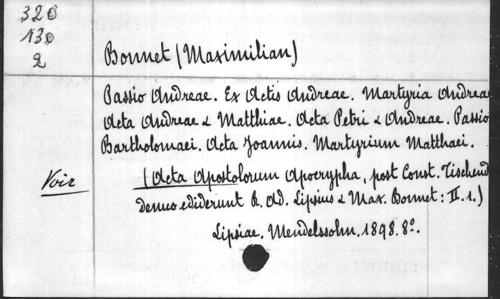 320
130
2
Bonnet (Maximilian)
Passio Andreae. Ex Actis Andreae. Martyria Andreae
Acta Andreae & Matthiae. Acta Petri & Andreae. Passio
Bartholomaei. Acta Joannis. Martyrium Matthaei.
Voir
(Acta Apostolorum Apocrypha, post Const. Tischend
denuo ediderunt R. Ad. Lipsius & Max. Bonnet: II. 1.)
Lipsiae. Mendelssohn. 1898. 8º.